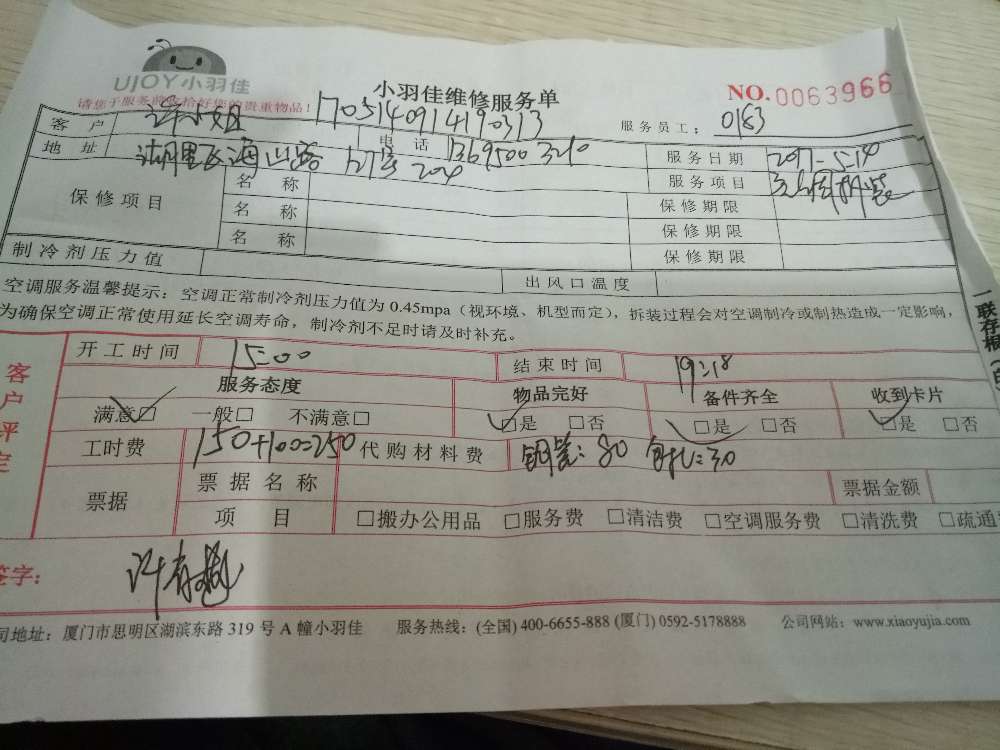 UJOY小羽佳
小羽佳维修服务单
NO.0063966
请您于服务前收拾好您的贵重物品!
客户 许小姐 1705140914190313 服务员工: 0183
地址 电话 服务日期 2017-5-14
204
保修项目 名称 服务项目
名称 保修期限
名称 保修期限
保修期限
制冷剂压力值 出风口温度
空调服务温馨提示:空调正常制冷剂压力值为 0.45mpa(视环境、机型而定),拆装过程会对空调制冷或制热造成一定影响,
为确保空调正常使用延长空调寿命,制冷剂不足时请及时补充。
一联存根
客户评定
开工时间 15:00 结束时间 19:18
服务态度 物品完好 备件齐全 收到卡片
满意□ 一般□ 不满意□ □是 □否 □是 □否 □是 □否
工时费 150+100=250 代购材料费 铜管:80 :30
票据 票据名称 票据金额
项目 □搬办公用品 □服务费 □清洁费 □空调服务费 □清洗费 □疏通
签字:
司地址:厦门市思明区湖滨东路 319 号 A 幢小羽佳 服务热线:(全国) 400-6655-888 (厦门) 0592-5178888 公司网站:www.xiaoyujia.com